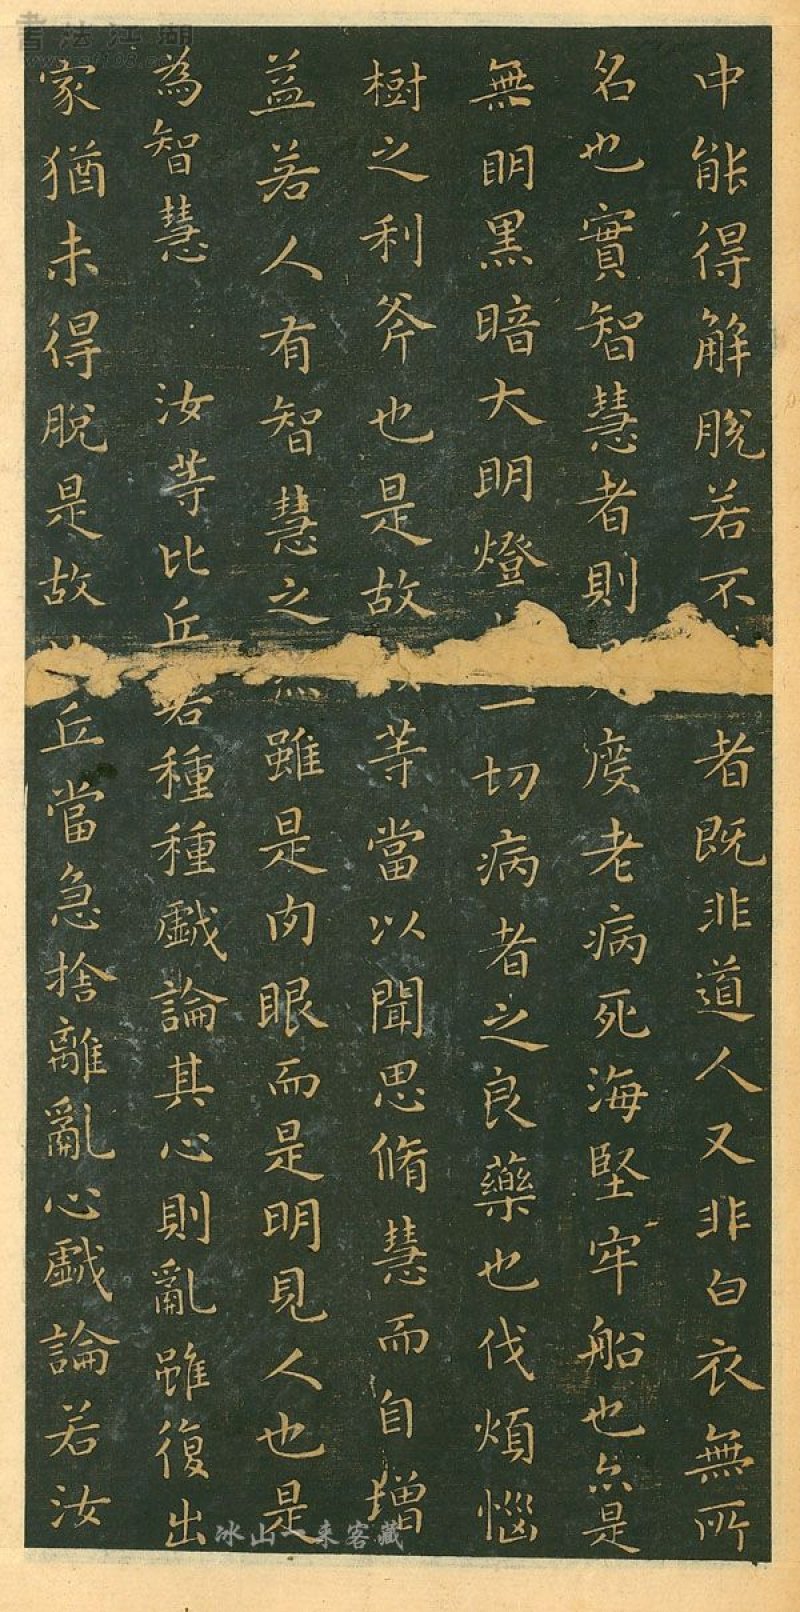 中能得解脫若不者既非道人又非白衣無所
名也實智慧者則度老病死海堅牢船也亦是
無明黑暗大明燈一切病者之良藥也伐煩惱
樹之利斧也是故等當以聞思脩慧而自增
益若人有智慧之雖是肉眼而是明見人也是
為智慧　汝等比丘若種種戲論其心則亂雖復出
家猶未得脫是故丘當急捨離亂心戲論若汝
書法江湖
冰山一来客藏